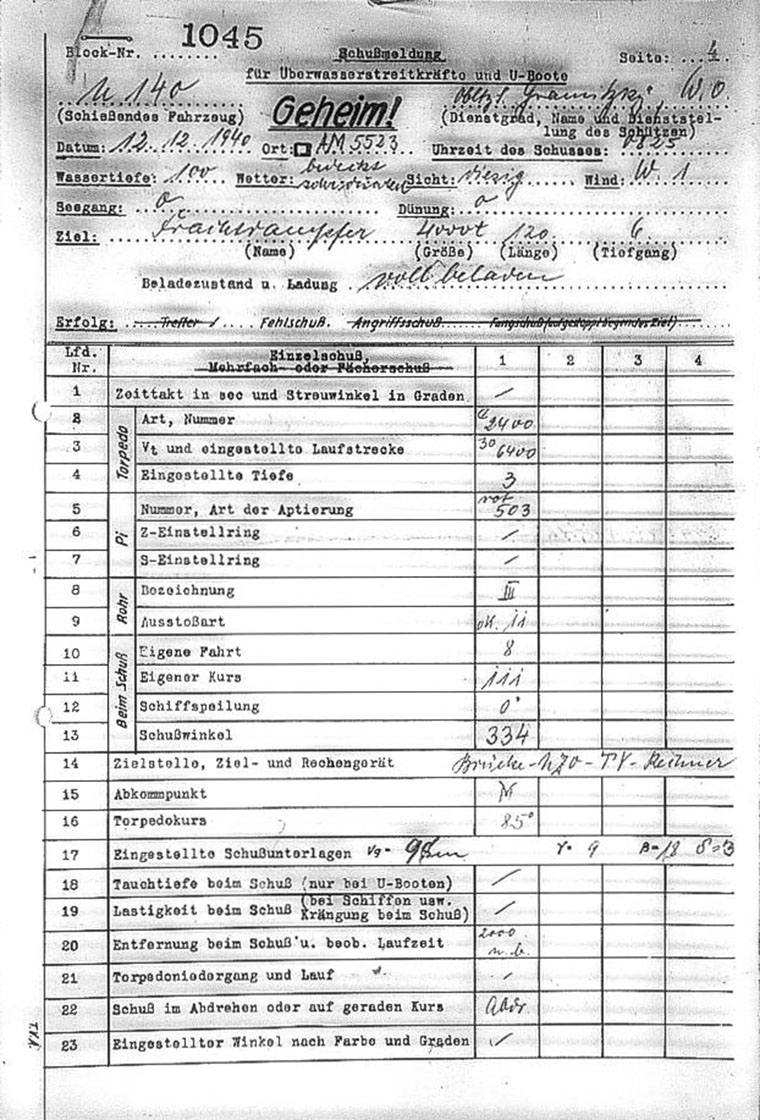 1045
Block-Nr. ........ Schußmeldung Seite: ...4.
für Überwasserstreitkräfte und U-Boote
U 140 Oblt.z.S. W.O
(Schießendes Fahrzeug) Geheim! (Dienstgrad, Name und Dienststel-
lung des Schützen)
Datum: 12.12.1940 Ort: AM 5523 Uhrzeit des Schusses: 0825
Wassertiefe: 100 Wetter: Sicht: diesig Wind: W. 1
Seegang: 0 Dünung: 0
Ziel: Frachtdampfer 4000t 120. 6.
(Name) (Größe) (Länge) (Tiefgang)
Beladezustand u. Ladung voll beladen
Erfolg: Treffer / Fehlschuß. Angriffsschuß Fangschuß(auf gestoppt liegendes Ziel)
Lfd. Nr. Einzelschuß, Mehrfach- oder Fächerschuß 1 2 3 4
1 Zeittakt in sec und Streuwinkel in Graden /
Torpedo
2 Art, Nummer 2400
3 Vt und eingestellte Laufstrecke 30 6400
4 Eingestellte Tiefe 3
Pi
5 Nummer, Art der Aptierung rot 503
6 Z-Einstellring /
7 S-Einstellring /
Rohr
8 Bezeichnung III
9 Ausstoßart
Beim Schuß
10 Eigene Fahrt 8
11 Eigener Kurs 111
12 Schiffspeilung 0°
13 Schußwinkel 334
14 Zielstelle, Ziel- und Rechengerät Brücke - UZO - TV - Rechner
15 Abkommpunkt M
16 Torpedokurs 85°
17 Eingestellte Schußunterlagen Vg= γ= 9 B=18 δ=3
18 Tauchtiefe beim Schuß (nur bei U-Booten) /
19 Lastigkeit beim Schuß (bei Schiffen usw. Krängung beim Schuß) /
20 Entfernung beim Schuß u. beob. Laufzeit 2000 n.b.
21 Torpedoniedergang und Lauf /
22 Schuß im Abdrehen oder auf geraden Kurs Abdr.
23 Eingestellter Winkel nach Farbe und Graden /